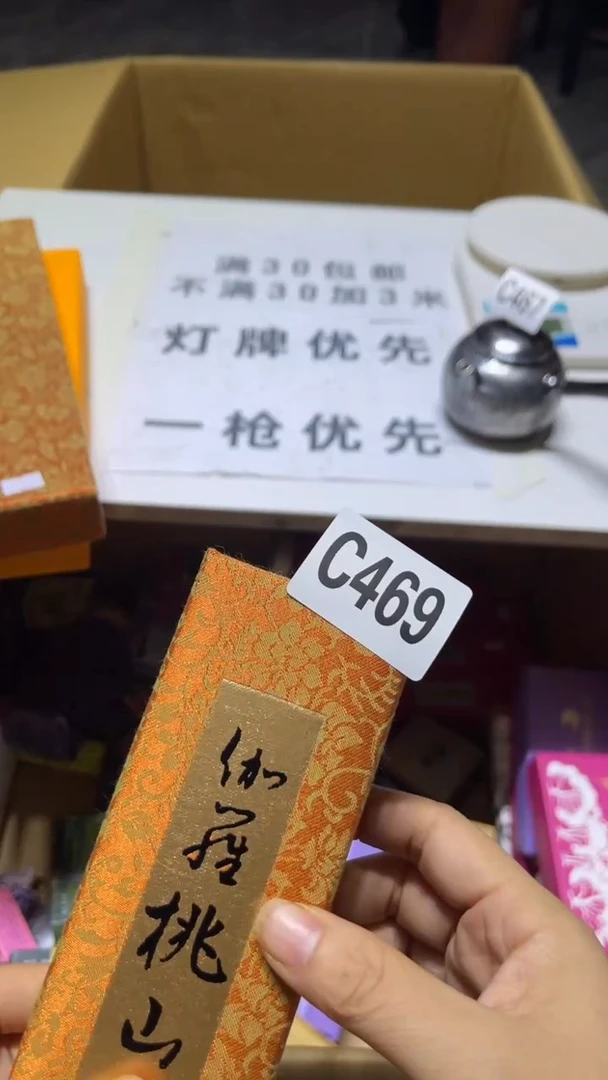 满30包邮
不满30加3米
灯牌优先
一枪优先
C467
C469
伽羅桃山